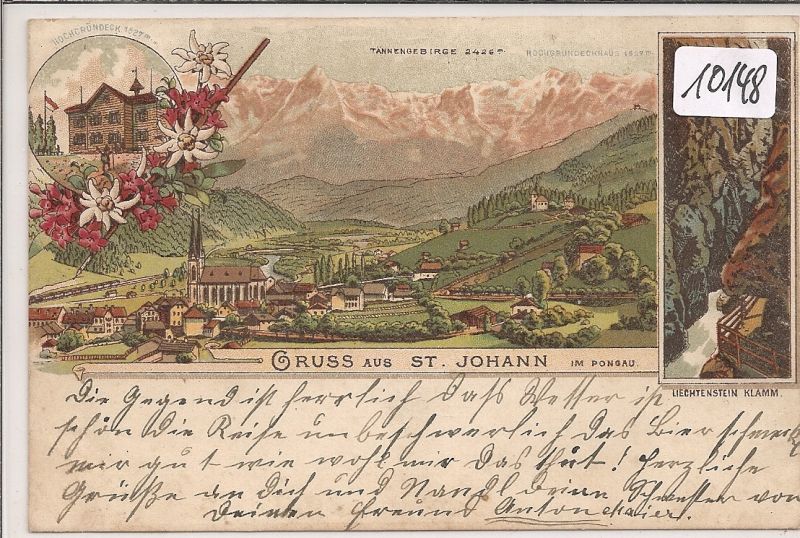 HOCHGRÜNDECK 1827m.
TÄNNENGEBIRGE 2426m
HOCHGRÜNDECKHAUS 1827m.
10148
GRUSS AUS ST. JOHANN IM PONGAU.
LIECHTENSTEIN KLAMM.
Die Gegend ist herrlich dass Wetter ist
schön die Reise unbeschwerlich das Bier schmeckt
mir gut wie wohl mir das thut! Herzliche
Grüße an Dich und Nandl deine Schwester von
Deinen Freund Anton